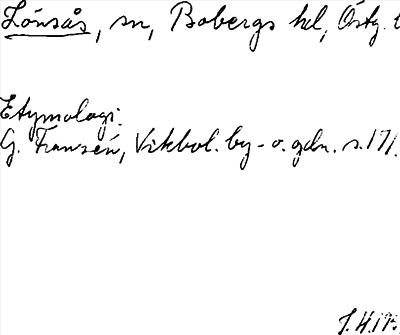 Lönsås, sn, Bobergs hd, Östg. l
Etymologi.
G. Franzén, Vikbol. by- o. gdn. s. 171.
J.H.195